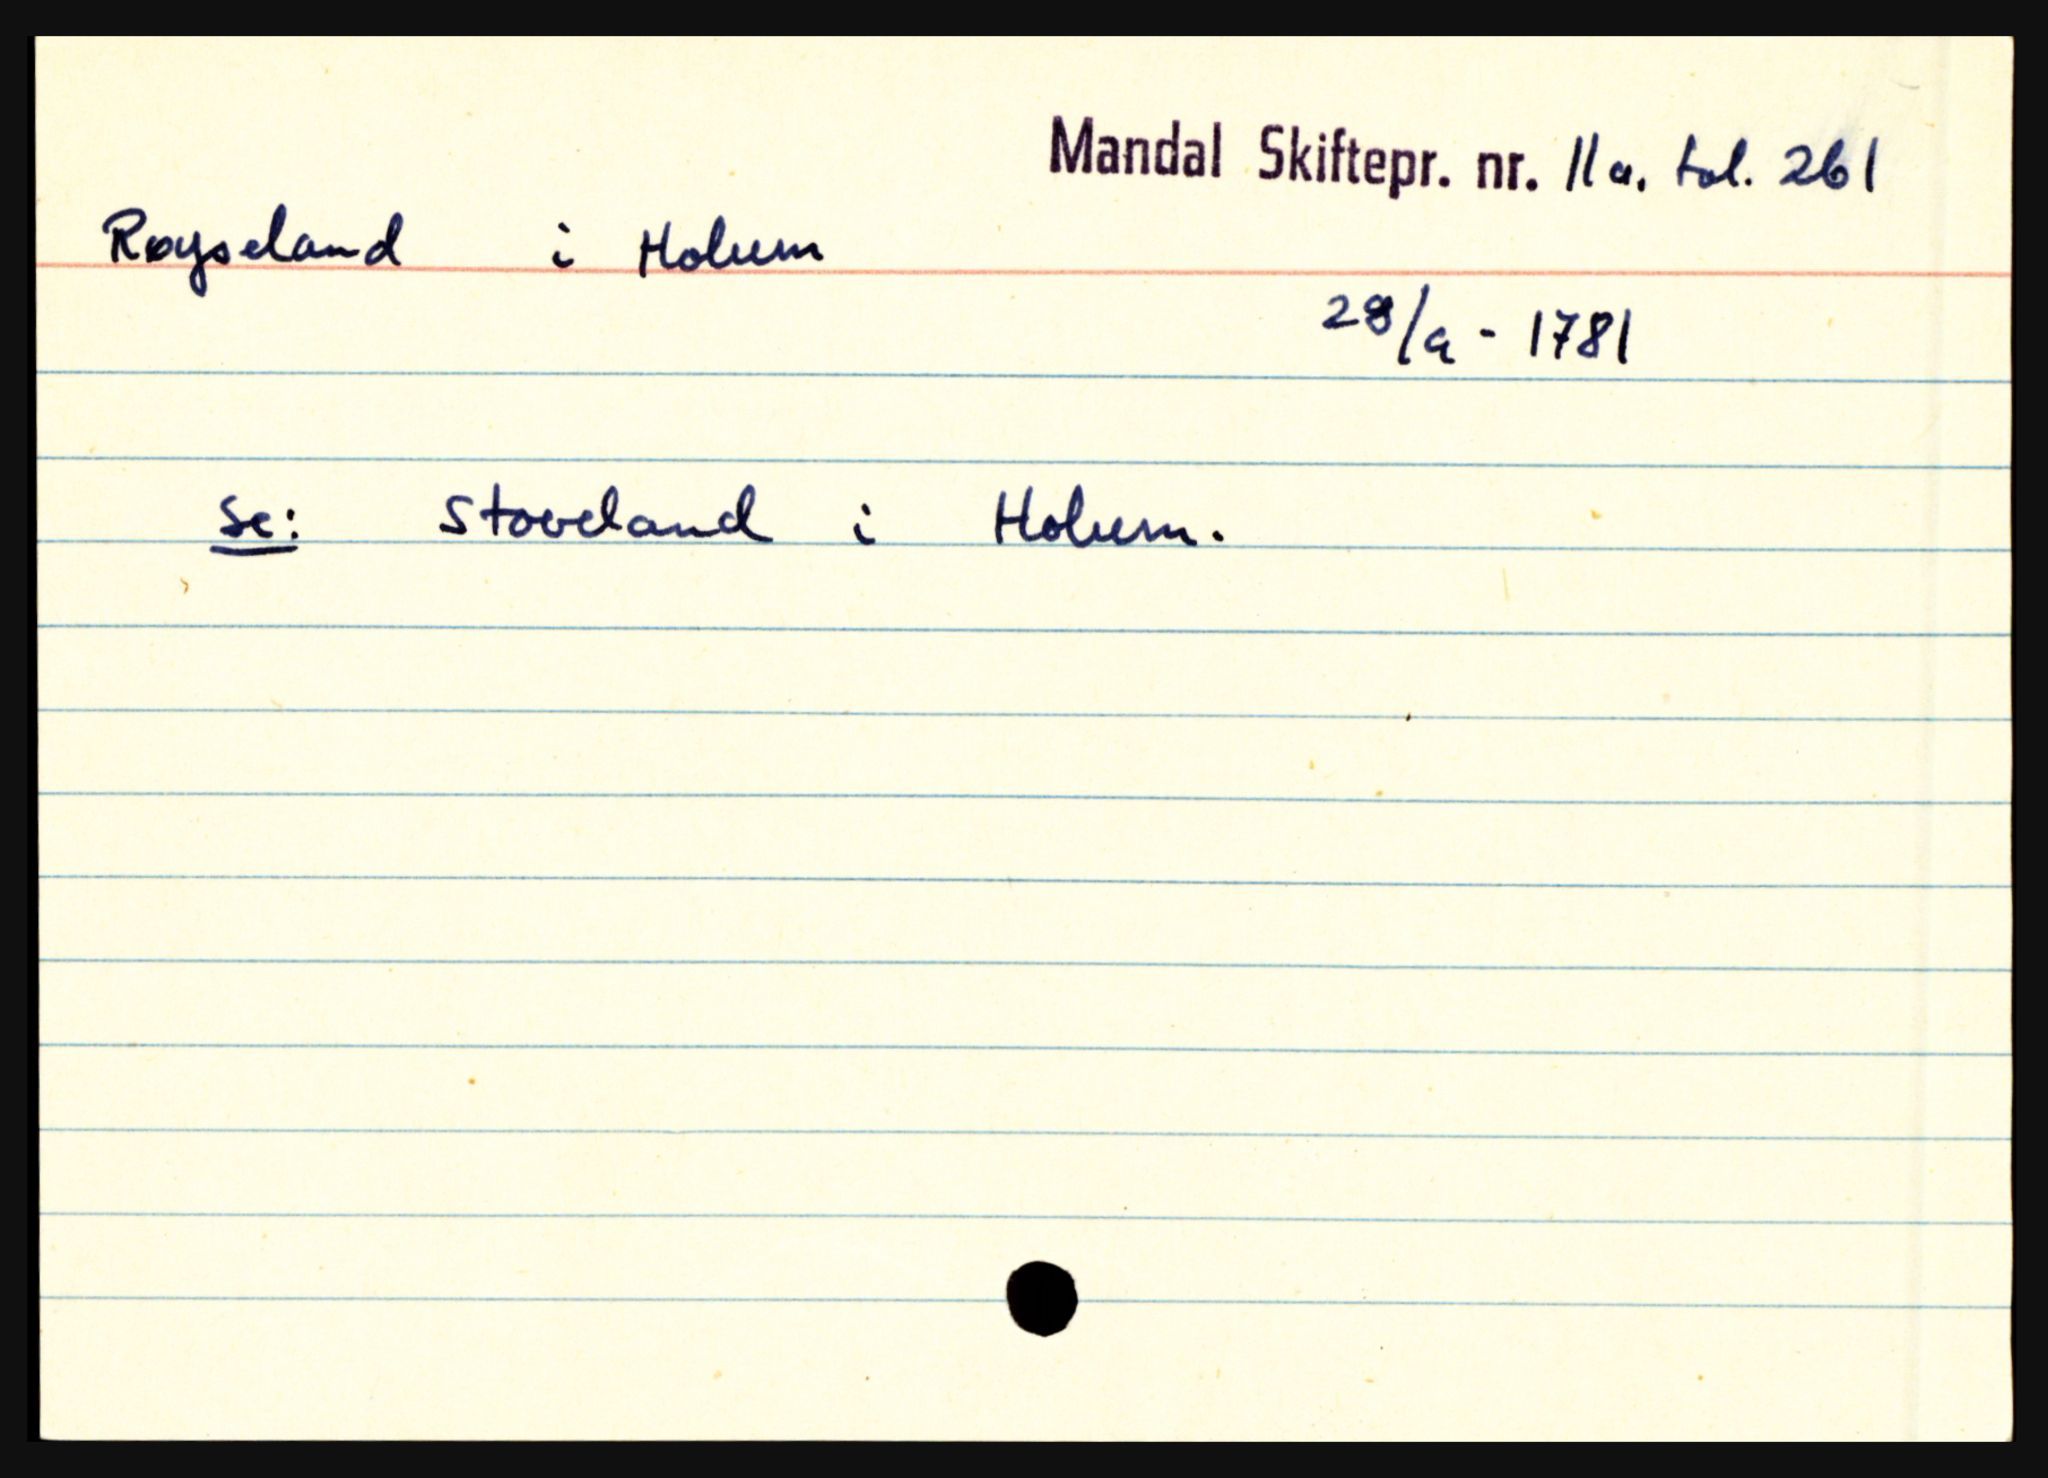 Mandal Skiftepr. nr. 11a. fol. 261
Røyseland i Holum
28/9 - 1781
se: Stoveland i Holum.